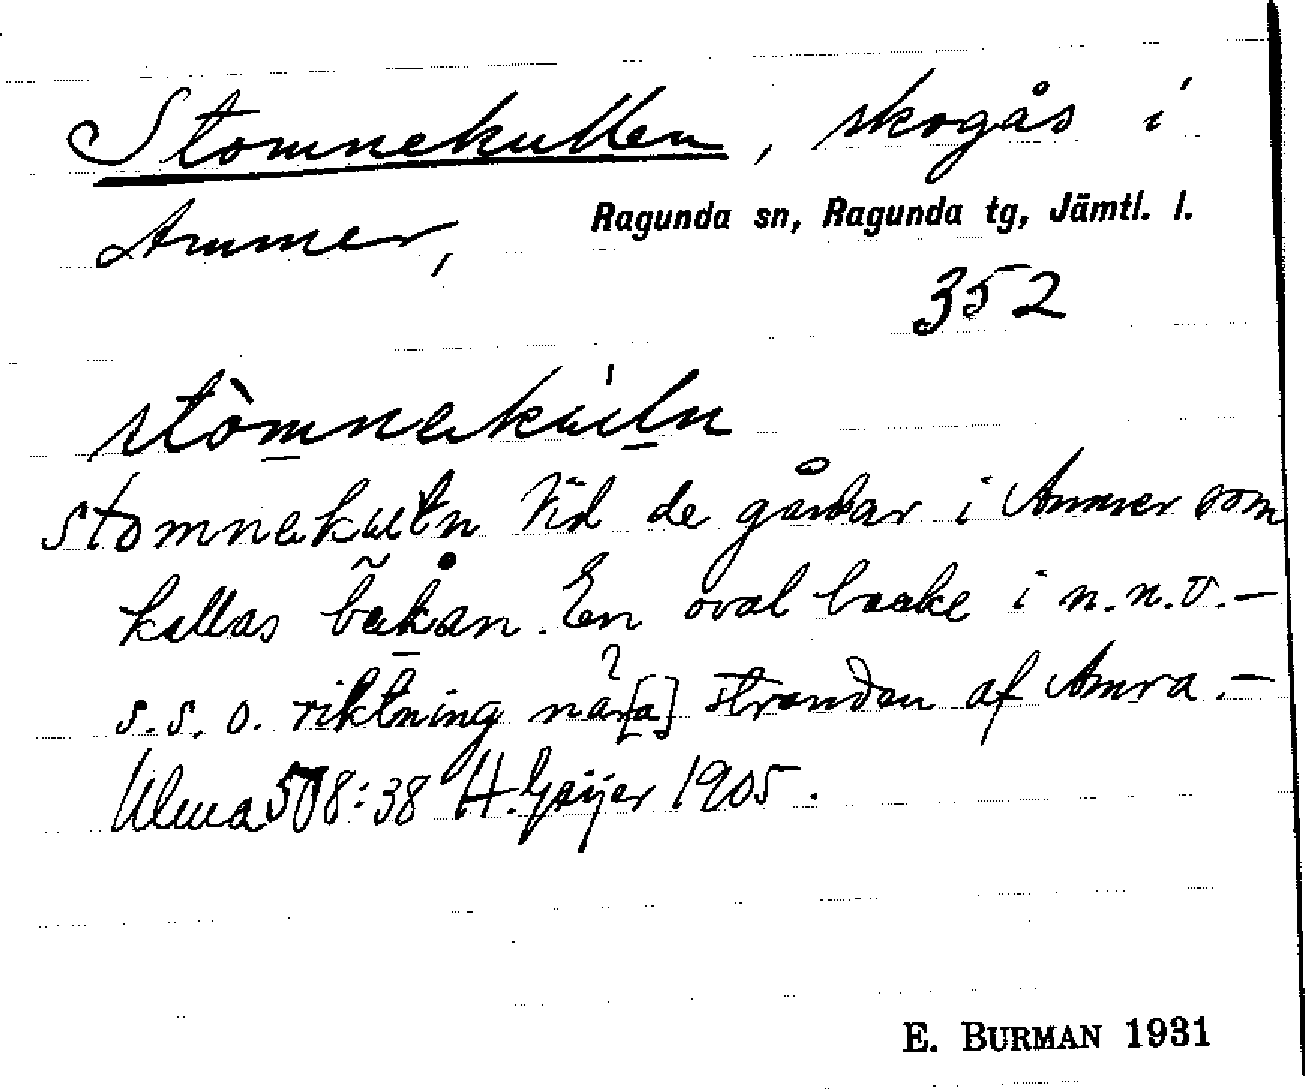 Stomnekullen, skogås i
Ammer, Ragunda sn, Ragunda tg, Jämtl. l.
352
stòmnekúln
stomnekuln Vid de gårdar i Ammer som
kallas bækån. En oval backe i n.n.v.–
s.s.o. riktning när[a] stranden af Amra.–
Ulma 508:38 H. Geijer 1905.
E. BURMAN 1931